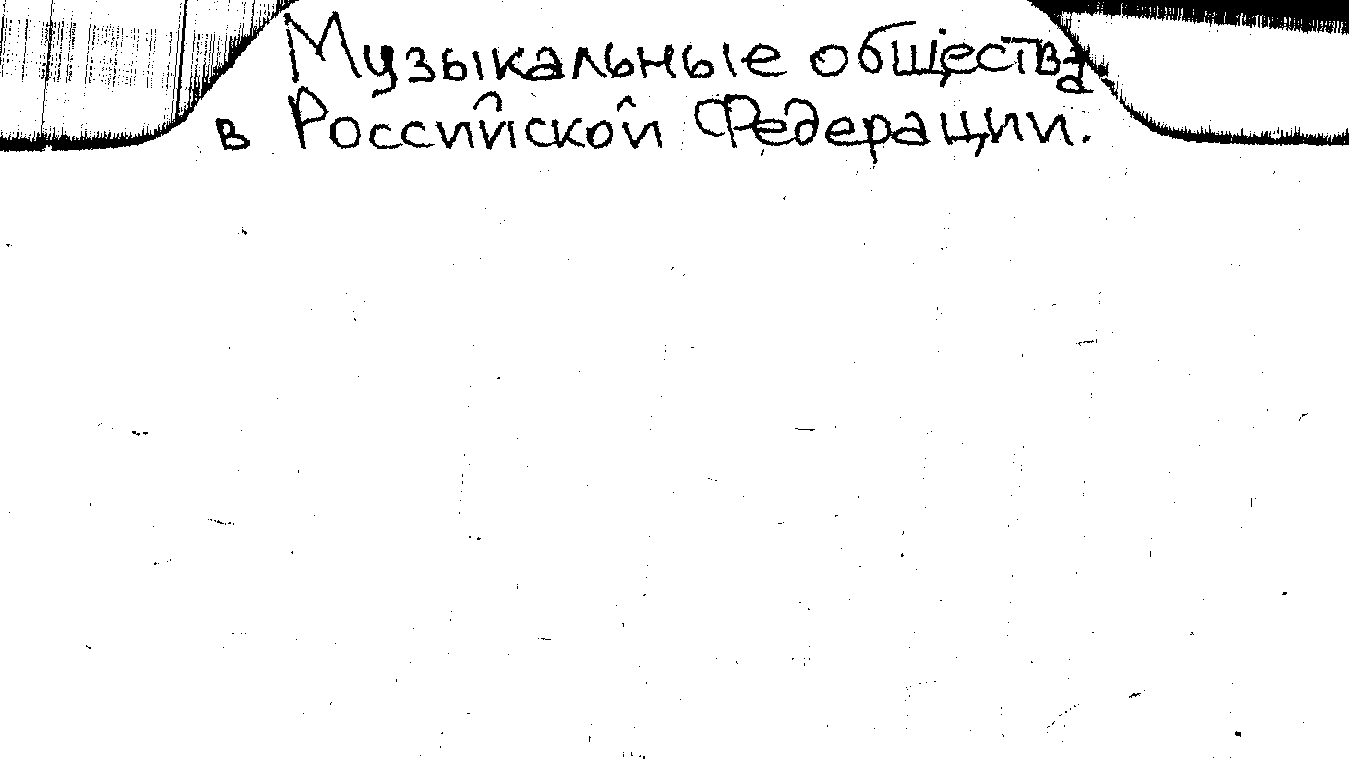 Музыкальные общества
в Российской Федерации.